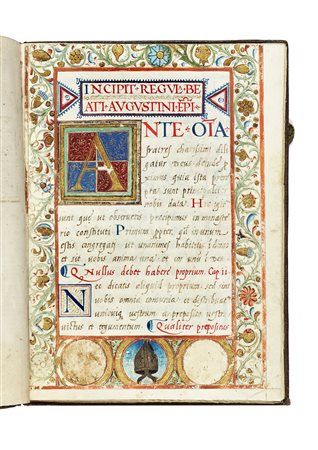 INCIPIT REGUL BE
ATI AUGUSTINI EPI
ANTE OIA
fratres charissimi dili
gatur deus deinde p
ximus quia ista prece
pta sunt principaliter
nobis data Hec
sunt que ut observetis precipimus in monaste
rio constituti Primum propter quod in unum
estis congregati ut unanimes habitetis in domo
et sit vobis anima una et cor unum
Nullus debet habere proprium Cap ii
Nec dicatis aliquid proprium sed sint
vobis omnia communia et distribuat
unicuique vestrum a preposito vestro
victus et tegumentum Qualiter prepositus